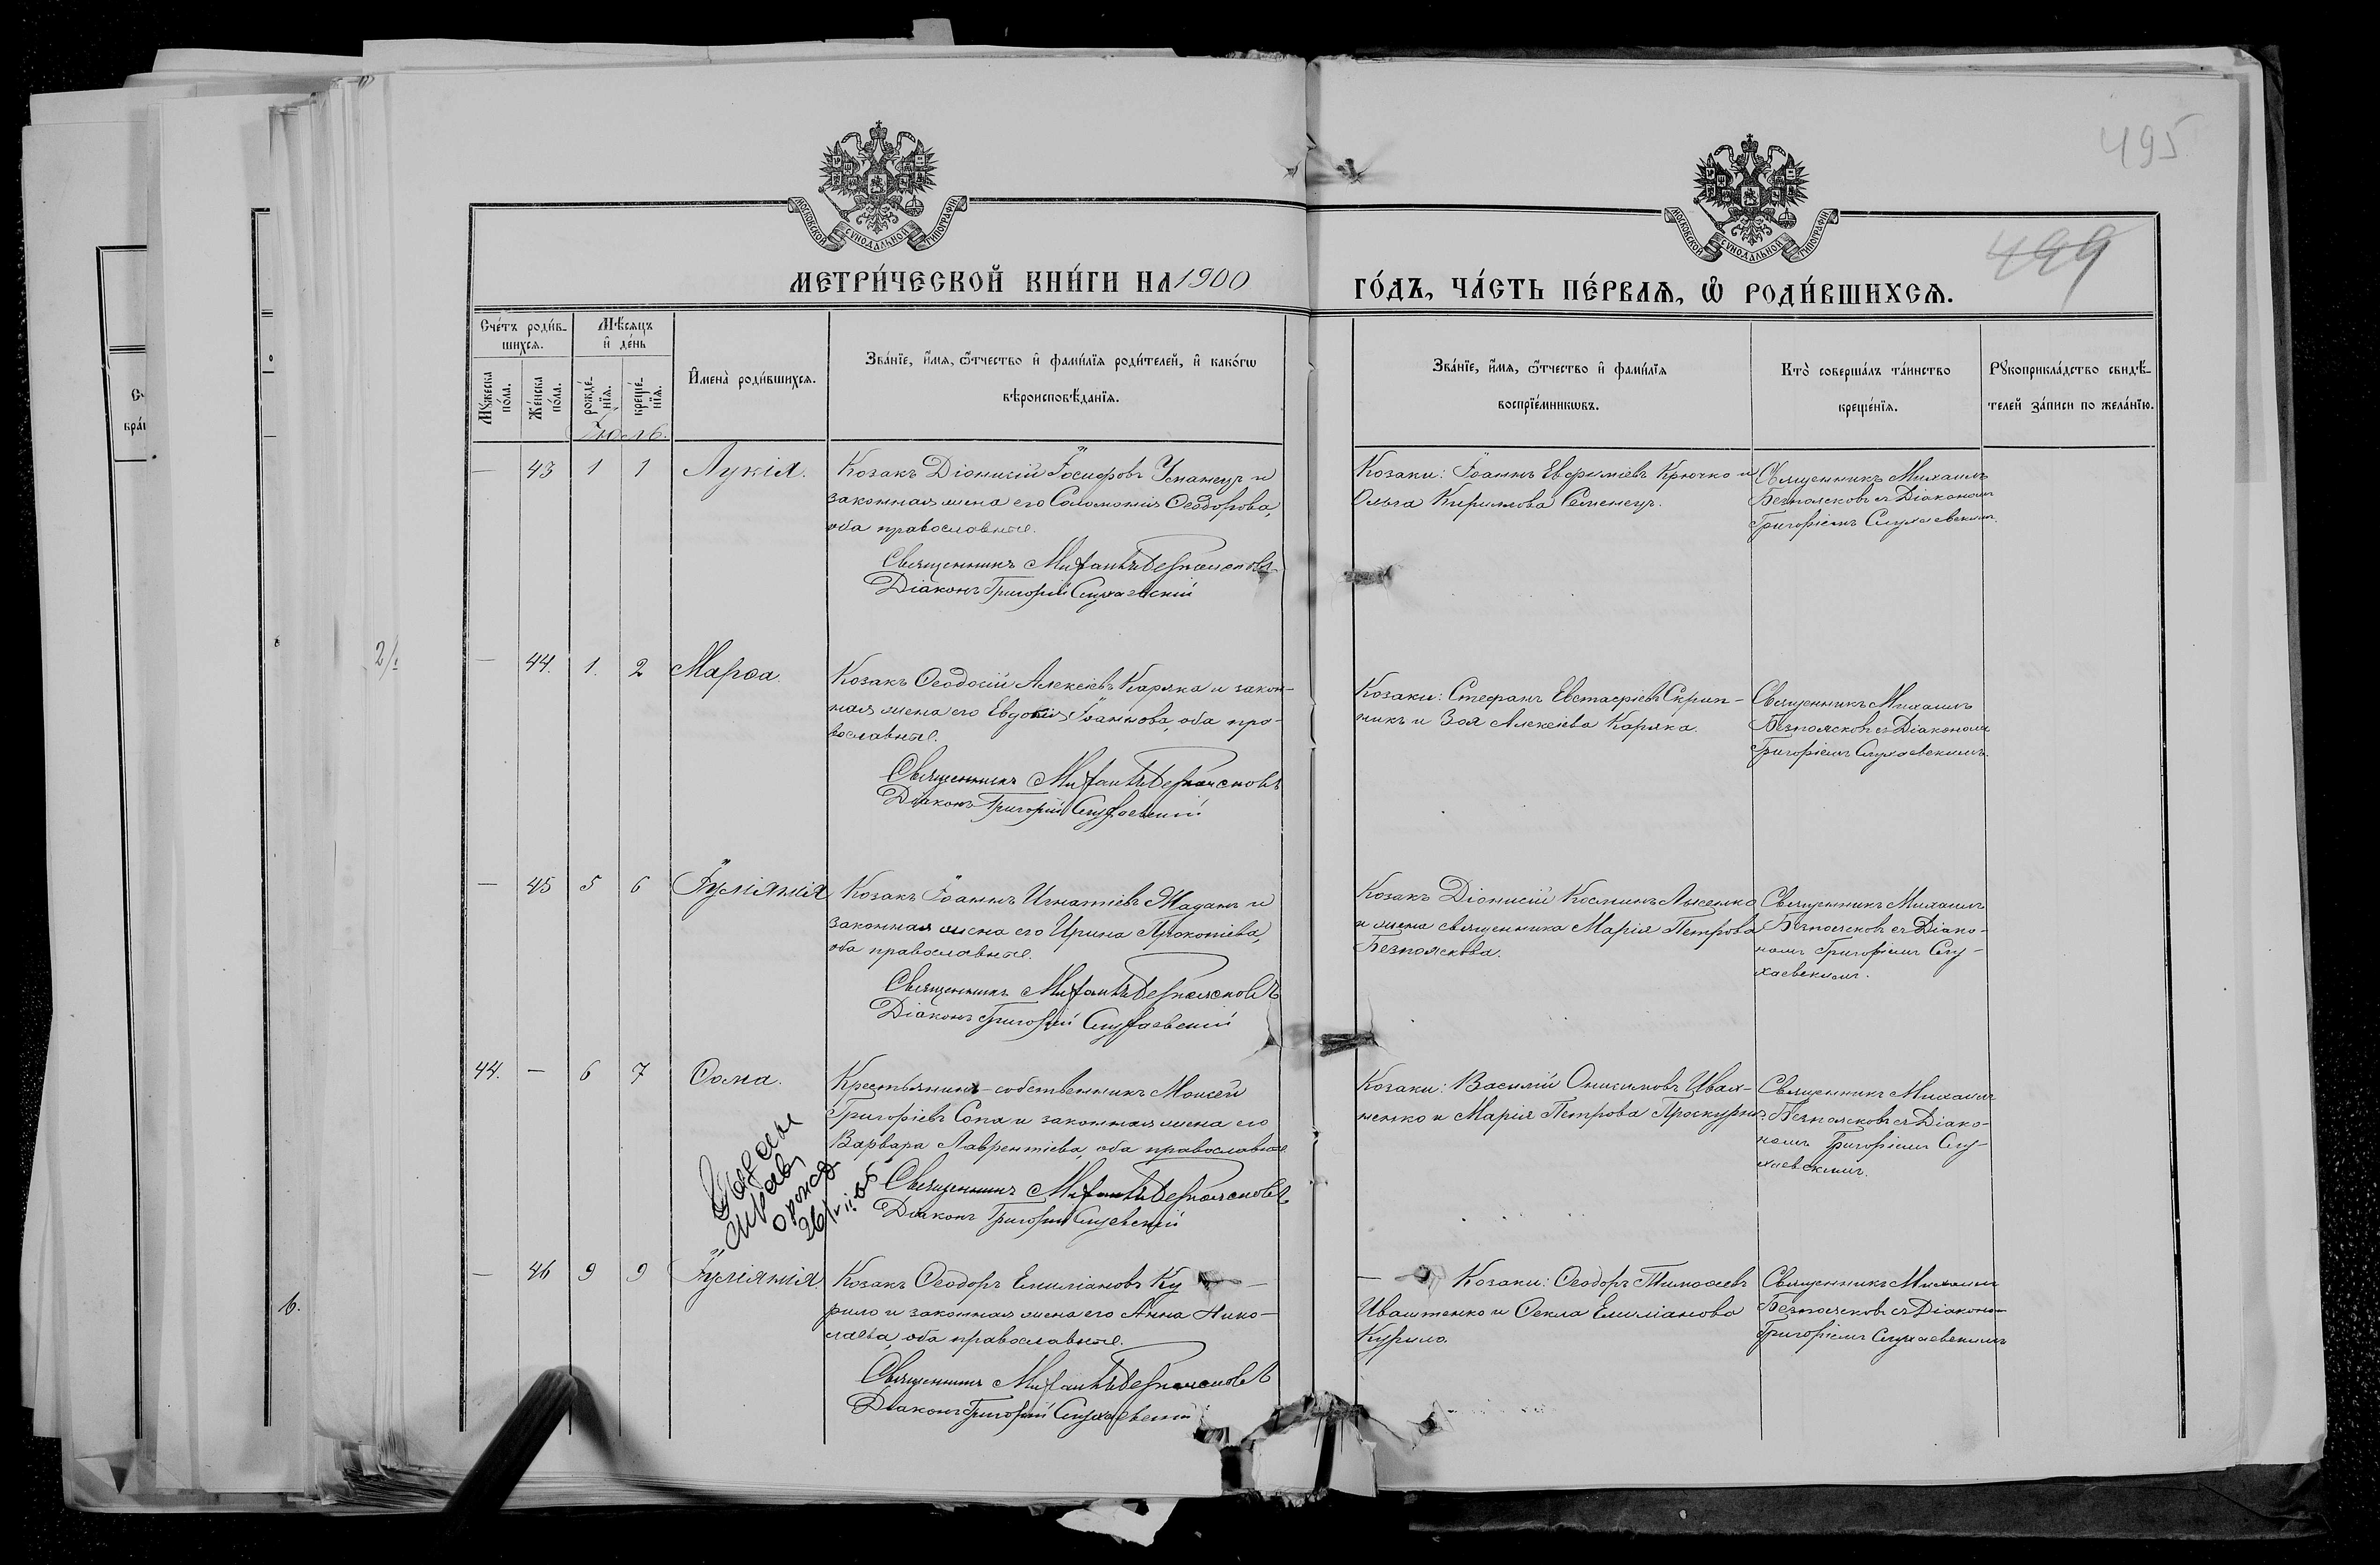 495
499
МОСКОВСКОЙ СѴНОДАЛЬНОЙ ТИПОГРАФІИ
МОСКОВСКОЙ СѴНОДАЛЬНОЙ ТИПОГРАФІИ
МЕТРИ́ЧЕСКОЙ КНИ́ГИ НА 1900
ГО́ДЪ, ЧА́СТЬ ПЕ́РВАѦ, Ѽ РОДИ́ВШИХСѦ.
Сче́тъ роди́в-
шихсѧ.
Мѣ́сяцъ
и҆ де́нь
Мꙋ́жеска
по́ла.
Же́нска
по́ла.
рожде́-
нїѧ.
креще́-
нїѧ.
Июль.
И҆мена̀ роди́вшихсѧ.
Зва́нїе, и҆́мѧ, ѻ҆́тчество и҆ фами́лїѧ роди́телей, и҆ како́гѡ
вѣроисповѣ́данїѧ.
Зва́нїе, и҆́мѧ, ѻ҆́тчество и҆ фами́лїѧ
воспрїе́мникѡвъ.
Кто̀ соверша́лъ та́инство
креще́нїѧ.
Рꙋкоприкла́дство свидѣ́-
телей за́писи по жела́нїю.
— 43 1 1 Лукія.
Козакъ Діонисій Іосифовъ Усманецъ и
законная жена его Соломонія Ѳеодорова,
оба православные.
Священникъ Михаилъ Безпоясковъ
Діаконъ Григорій Слухаевскій
Козаки: Іоаннъ Евфиміевъ Крючко и
Ольга Кирилова Семенецъ.
Священникъ Михаилъ
Безпоясковъ съ Діакономъ
Григоріемъ Слухаевскимъ.
2/
— 44. 1. 2 Марѳа.
Козакъ Ѳеодосій Алексіевъ Каряка и закон-
ная жена его Евдокія Іоаннова, оба пра-
вославные.
Священникъ Михаилъ Безпоясковъ
Діаконъ Григорій Слухаевскій
Козаки: Стефанъ Евстафіевъ Скрып-
никъ и Зоя Алексіева Каряка.
Священникъ Михаилъ
Безпоясковъ съ Діакономъ
Григоріемъ Слухаевскимъ.
— 45 5 6 Іуліянія
Козакъ Іоаннъ Игнатіевъ Жаданъ и
законная жена его Ирина Прокопіева,
оба православные.
Священникъ Михаилъ Безпоясковъ
Діаконъ Григорій Слухаевскій
Козакъ Діонисій Косминъ Лысенко
и жена священника Марія Петрова
Безпояскова.
Священникъ Михаилъ
Безпоясковъ съ Діако-
номъ Григоріемъ Слу-
хаевскимъ.
44. — 6 7 Ѳома.
Крестьянинъ-собственникъ Моисей
Григоріевъ Сопа и законная жена его
Варвара Лаврентіева, оба православные
Священникъ Михаилъ Безпоясковъ
Діаконъ Григорій Слухаевскій
Козаки: Василій Онисимовъ Иваш-
ненко и Марія Петрова Проскурня.
Священникъ Михаилъ
Безпоясковъ съ Діако-
номъ Григоріемъ Слу-
хаевскимъ.
— 46 9 9 Іуліянія.
Козакъ Ѳеодоръ Емиліановъ Ку-
рило и законная жена его Анна Нико-
лаева, оба православные.
Священникъ Михаилъ Безпоясковъ
Діаконъ Григорій Слухаевскій
— Козаки: Ѳеодоръ Тимоѳеевъ
Иваштенко и Ѳекла Емиліанова
Курило.
Священникъ Михаилъ
Безпоясковъ съ Діакономъ
Григоріемъ Слухаевскимъ
6.